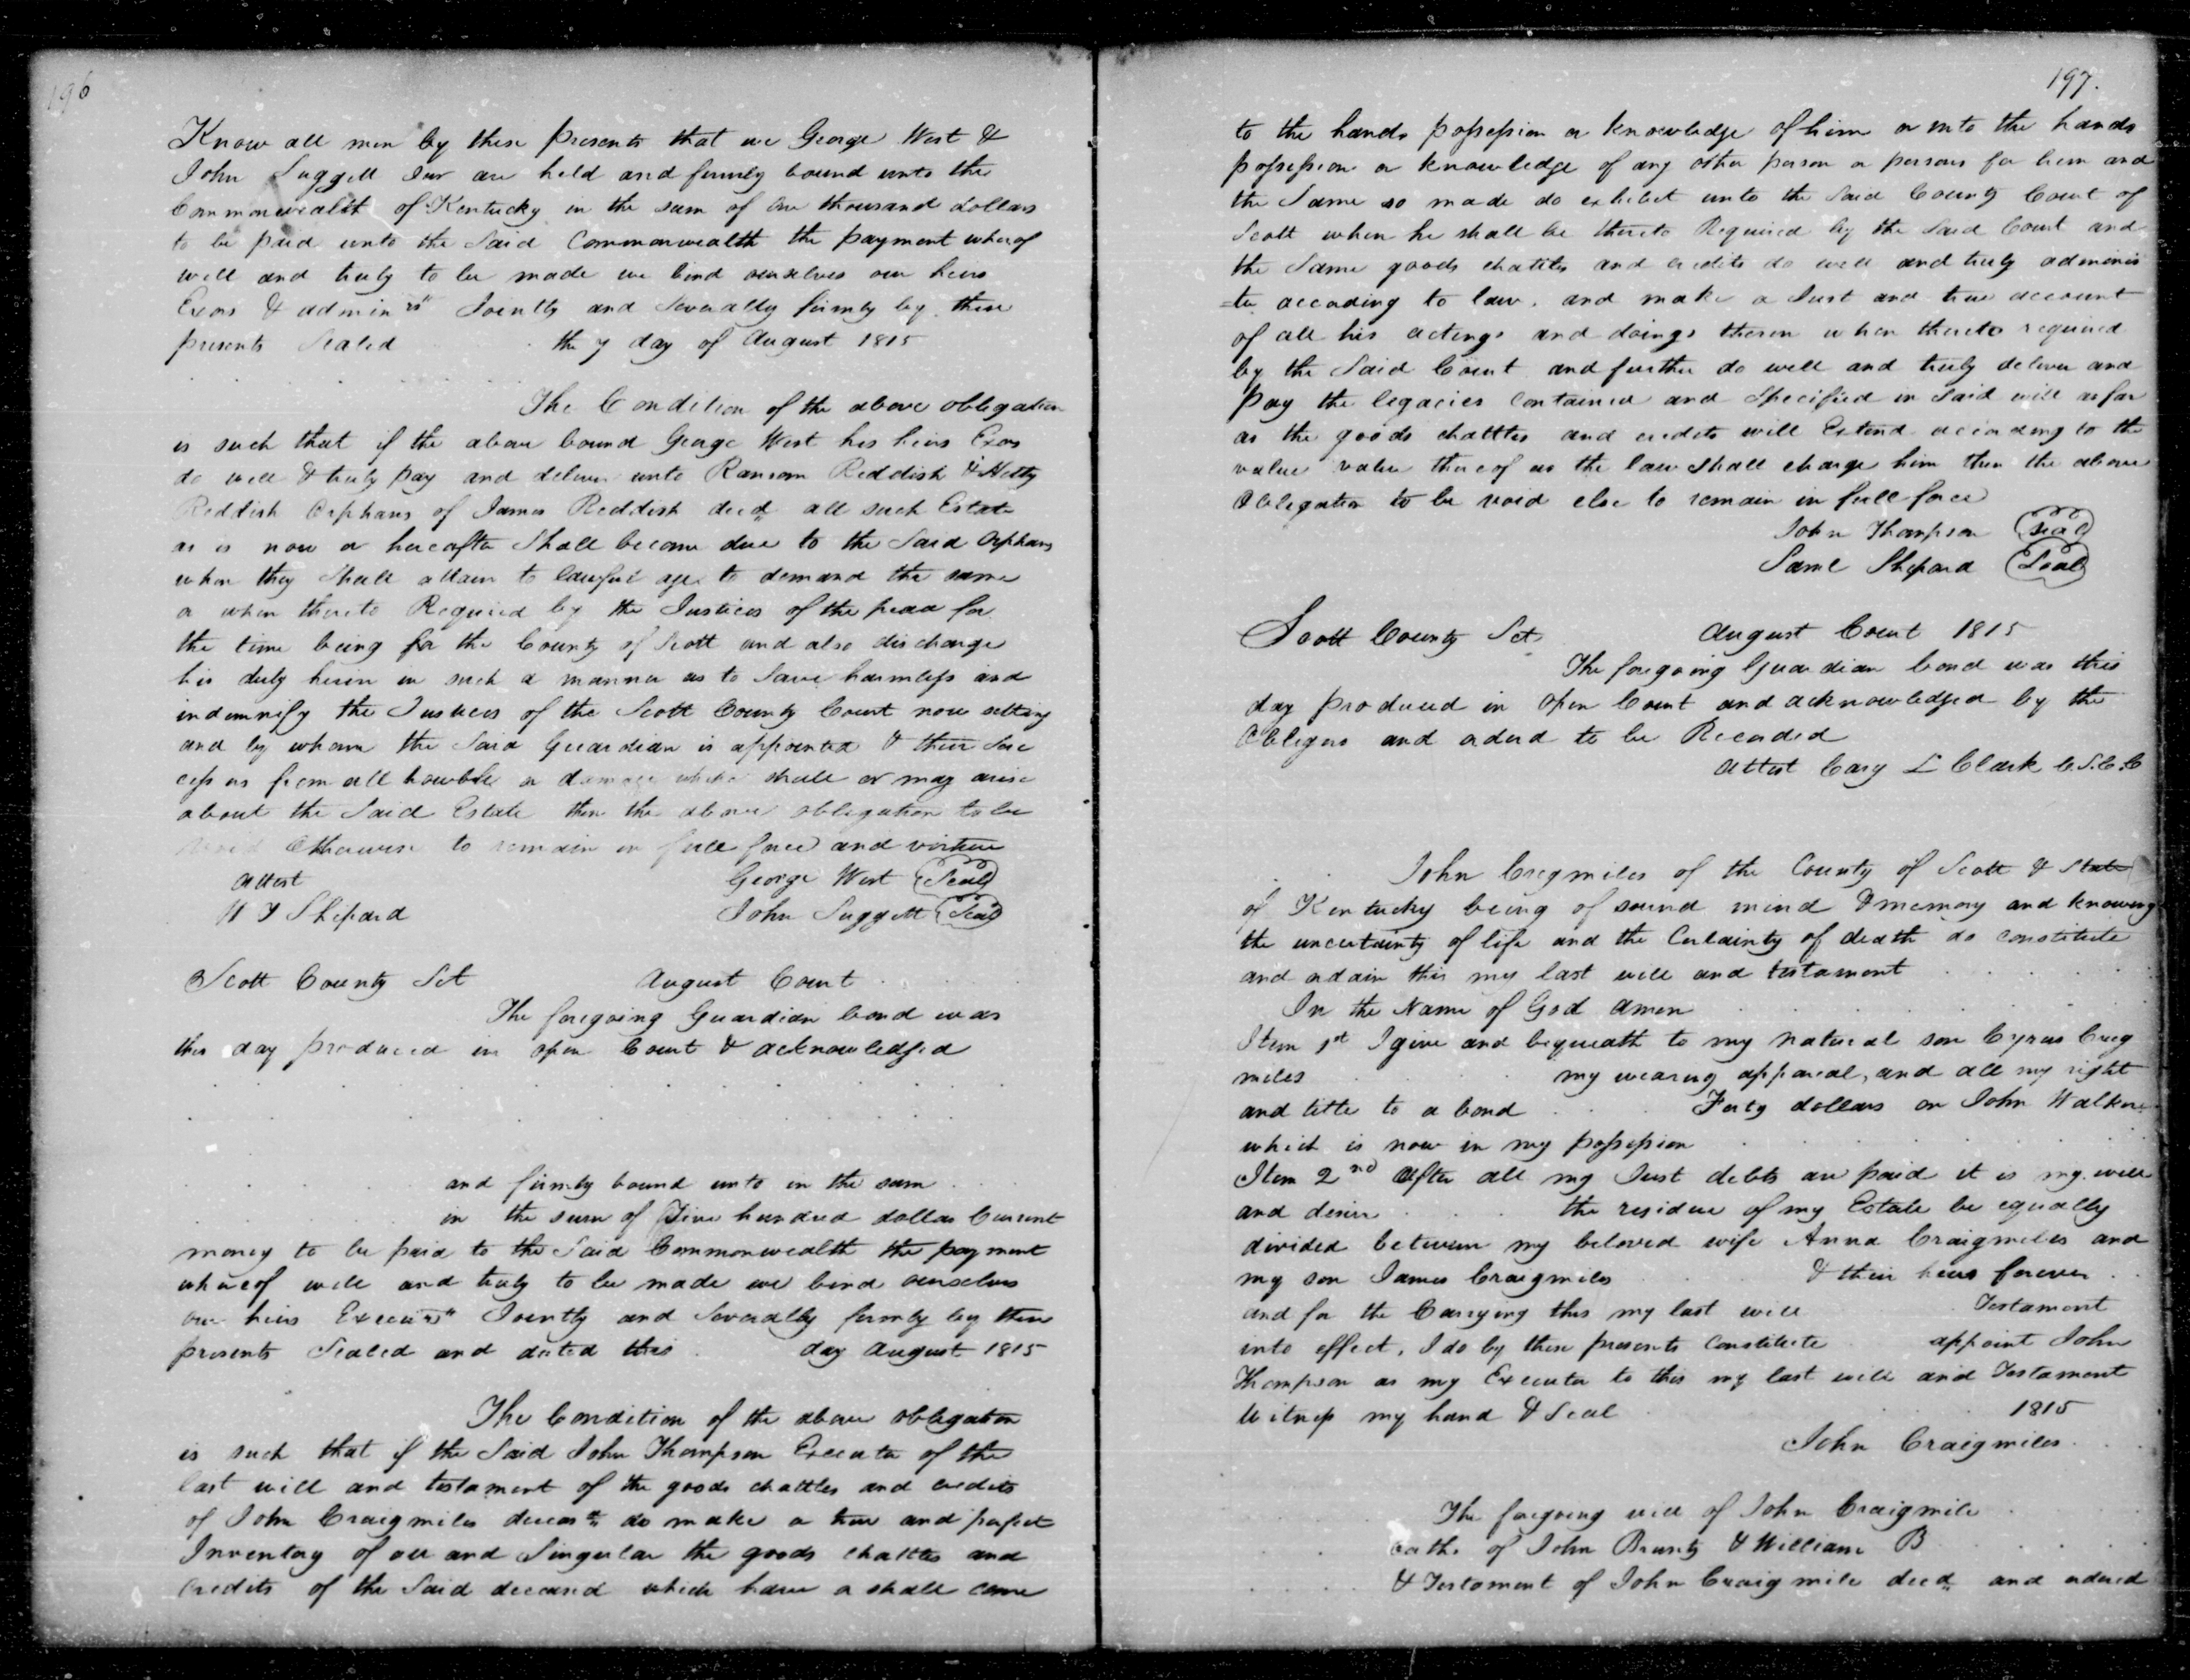 196
Know all men by these presents that we George West &
John Suggett Junr are held and firmly bound unto the
Commonwealth of Kentucky in the sum of one thousand dollars
to be paid unto the Said Commonwealth the payment wherof
well and truly to be made we bind ourselves our heirs
Exors & adminrs Jointly and Severally firmly by these
presents Sealed the 7 day of August 1815
The Condition of the above obligation
is such that if the above bound George West his heirs Exors
do well & truly pay and deliver unto Ransom Reddish & Hetty
Reddish Orphans of James Reddish decd all such Estate
as is now or hereafter Shall become due to the Said Orphans
when they Shall attain to lawful age to demand the same
or when thereto Required by the Justices of the peace for
the time being for the County of Scott and also discharge
his duty herin in such a manner as to Save harmless and
indemnify the Justices of the Scott County Court now sitting
and by whom the Said Guardian is appointed & their Suc
cessors from all trouble or damage which shall or may arise
about the Said Estate then the above obligation to be
void Otherwise to remain in full force and virtue
Attest George West Seal
W T Shepard John Suggett Seal
Scott County Sct August Court
The foregoing Guardian bond was
this day produced in open Court & acknowledged
and firmly bound unto in the sum
in the sum of Five hundred dollars Current
money to be paid to the Said Commonwealth the payment
whereof well and truly to be made we bind ourselves
our heirs Jointly and Severally firmly by these
presents Sealed and dated this day August 1815
The Condition of the above obligation
is such that if the Said John Thompson Executor of the
last will and testament of the goods chattles and credits
of John Craigmiles deceasd do make a true and perfect
Inventory of all and Singular the goods chattles and
Credits of the Said deceased which have or shall come
197.
to the hands possession or knowledge of him or into the hands
possession or knowledge of any other person or persons for him and
the Same so made do exhibit unto the Said County Court of
Scott when he shall be thereto Required by the Said Court and
the Same goods chattles and credits do well and truly adminis
=ter according to law, and make a Just and true account
of all his actings and doings therein when thereto required
by the Said Court and further do well and truly deliver and
pay the legacies contained and Specified in Said will as far
as the goods chattles and credits will Extend according to the
value value thereof as the law shall charge him then the above
Obligation to be void else to remain in full force
John Thompson Seal
Saml Shepard Seal
Scott County Sct August Court 1815
The foregoing Guardian bond was this
day produced in open Court and acknowledged by the
Obligors and ordered to be Recorded
Attest Cary L Clark C.S.C.C
John Cregmiles of the County of Scott & State
of Kentucky being of sound mind & memory and knowing
the uncertainty of life and the Certainty of death do constitute
and ordain this my last will and testament
In the Name of God Amen
Item 1st I give and bequeath to my natural son Cyrus Creg
miles my wearing apparel, and all my right
and title to a bond Forty dollars on John Walker
which is now in my possession
Item 2nd After all my Just debts are paid it is my will
and desire the residue of my Estate be equally
divided between my beloved wife Anna Craigmiles and
my son James Craigmiles & their heirs forever
and for the Carrying this my last will Testament
into effect, I do by these presents constitute appoint John
Thompson as my Executor to this my last will and Testament
Witness my hand & Seal 1815
John Craigmiles
The foregoing will of John Craigmile
oaths of John Brunty & William B
& Testament of John Craigmile decd and ordered